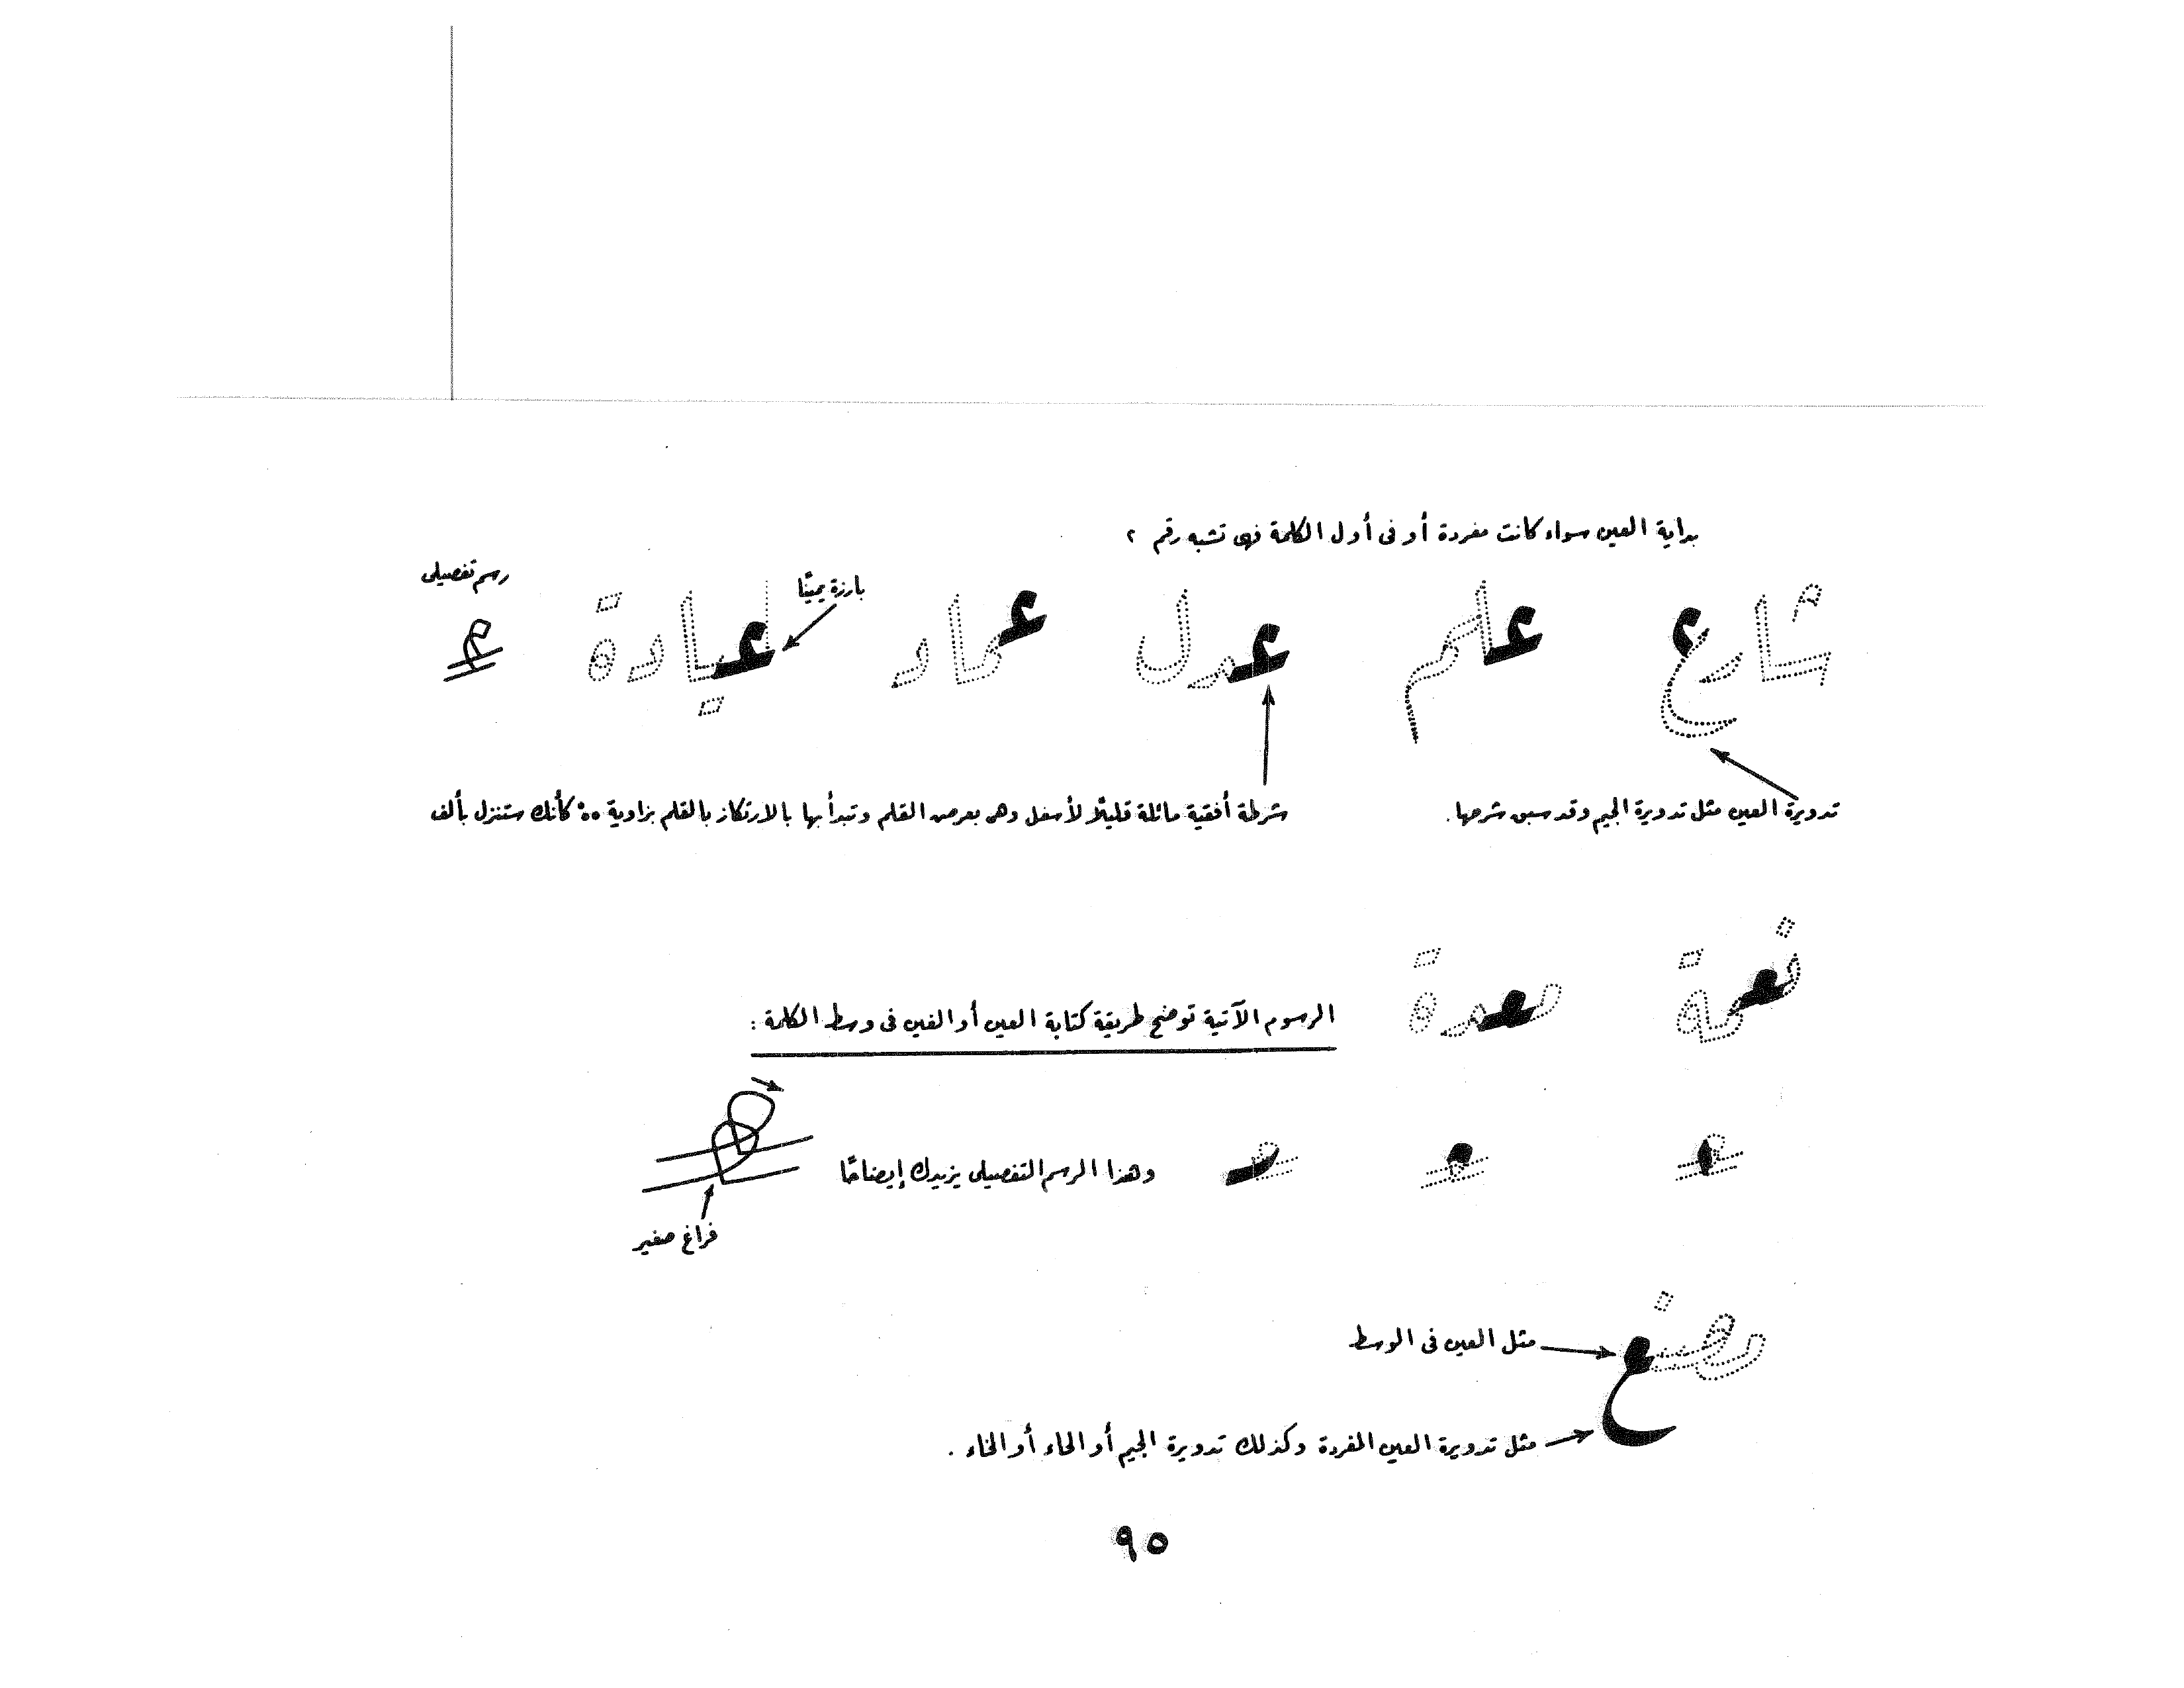 بداية العين سواء كانت مفردة أو فى أول الكلمة فهى تشبه رقم ٢
رسم تفصيلى
بارزة يمينًا
شارع علم عدل عماد عيادة
تدويرة العين مثل تدويرة الجيم وقد سبق شرحها.
شرطة أفقية مائلة قليلًا لأسفل وهى بعرض القلم وتبدأ بها بالارتكاز بالقلم بزاوية ٥٥ كأنك ستنزل بألف
نعمة معدة
الرسوم الآتية توضح طريقة كتابة العين أو الغين فى وسط الكلمة :
وهذا الرسم التفصيلى يزيدك إيضاحًا
فراغ صغير
مثل العين فى الوسط
مثل تدويرة العين المفردة وكذلك تدويرة الجيم أو الحاء أو الخاء .
٩٥